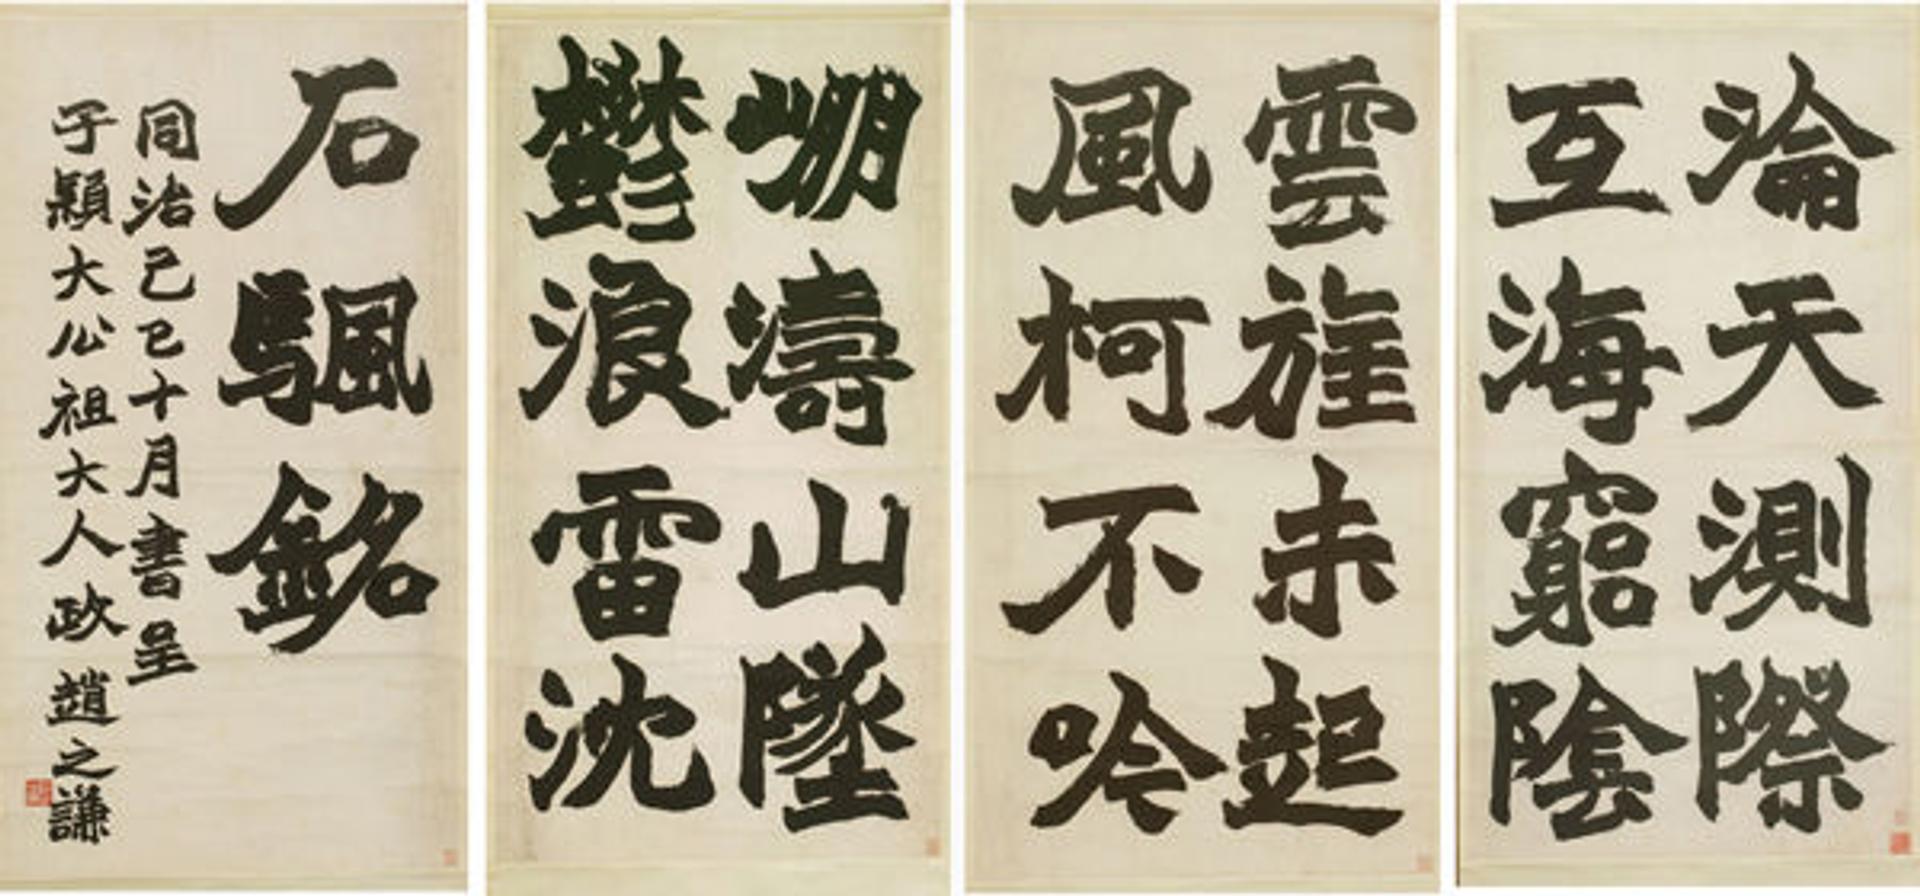 淪天測際
互海窮陰
雲旌未起
風柯不吟
崩濤山墜
鬱浪雷沈
石颿銘
同治己巳十月書呈
子穎大公祖大人政 趙之謙